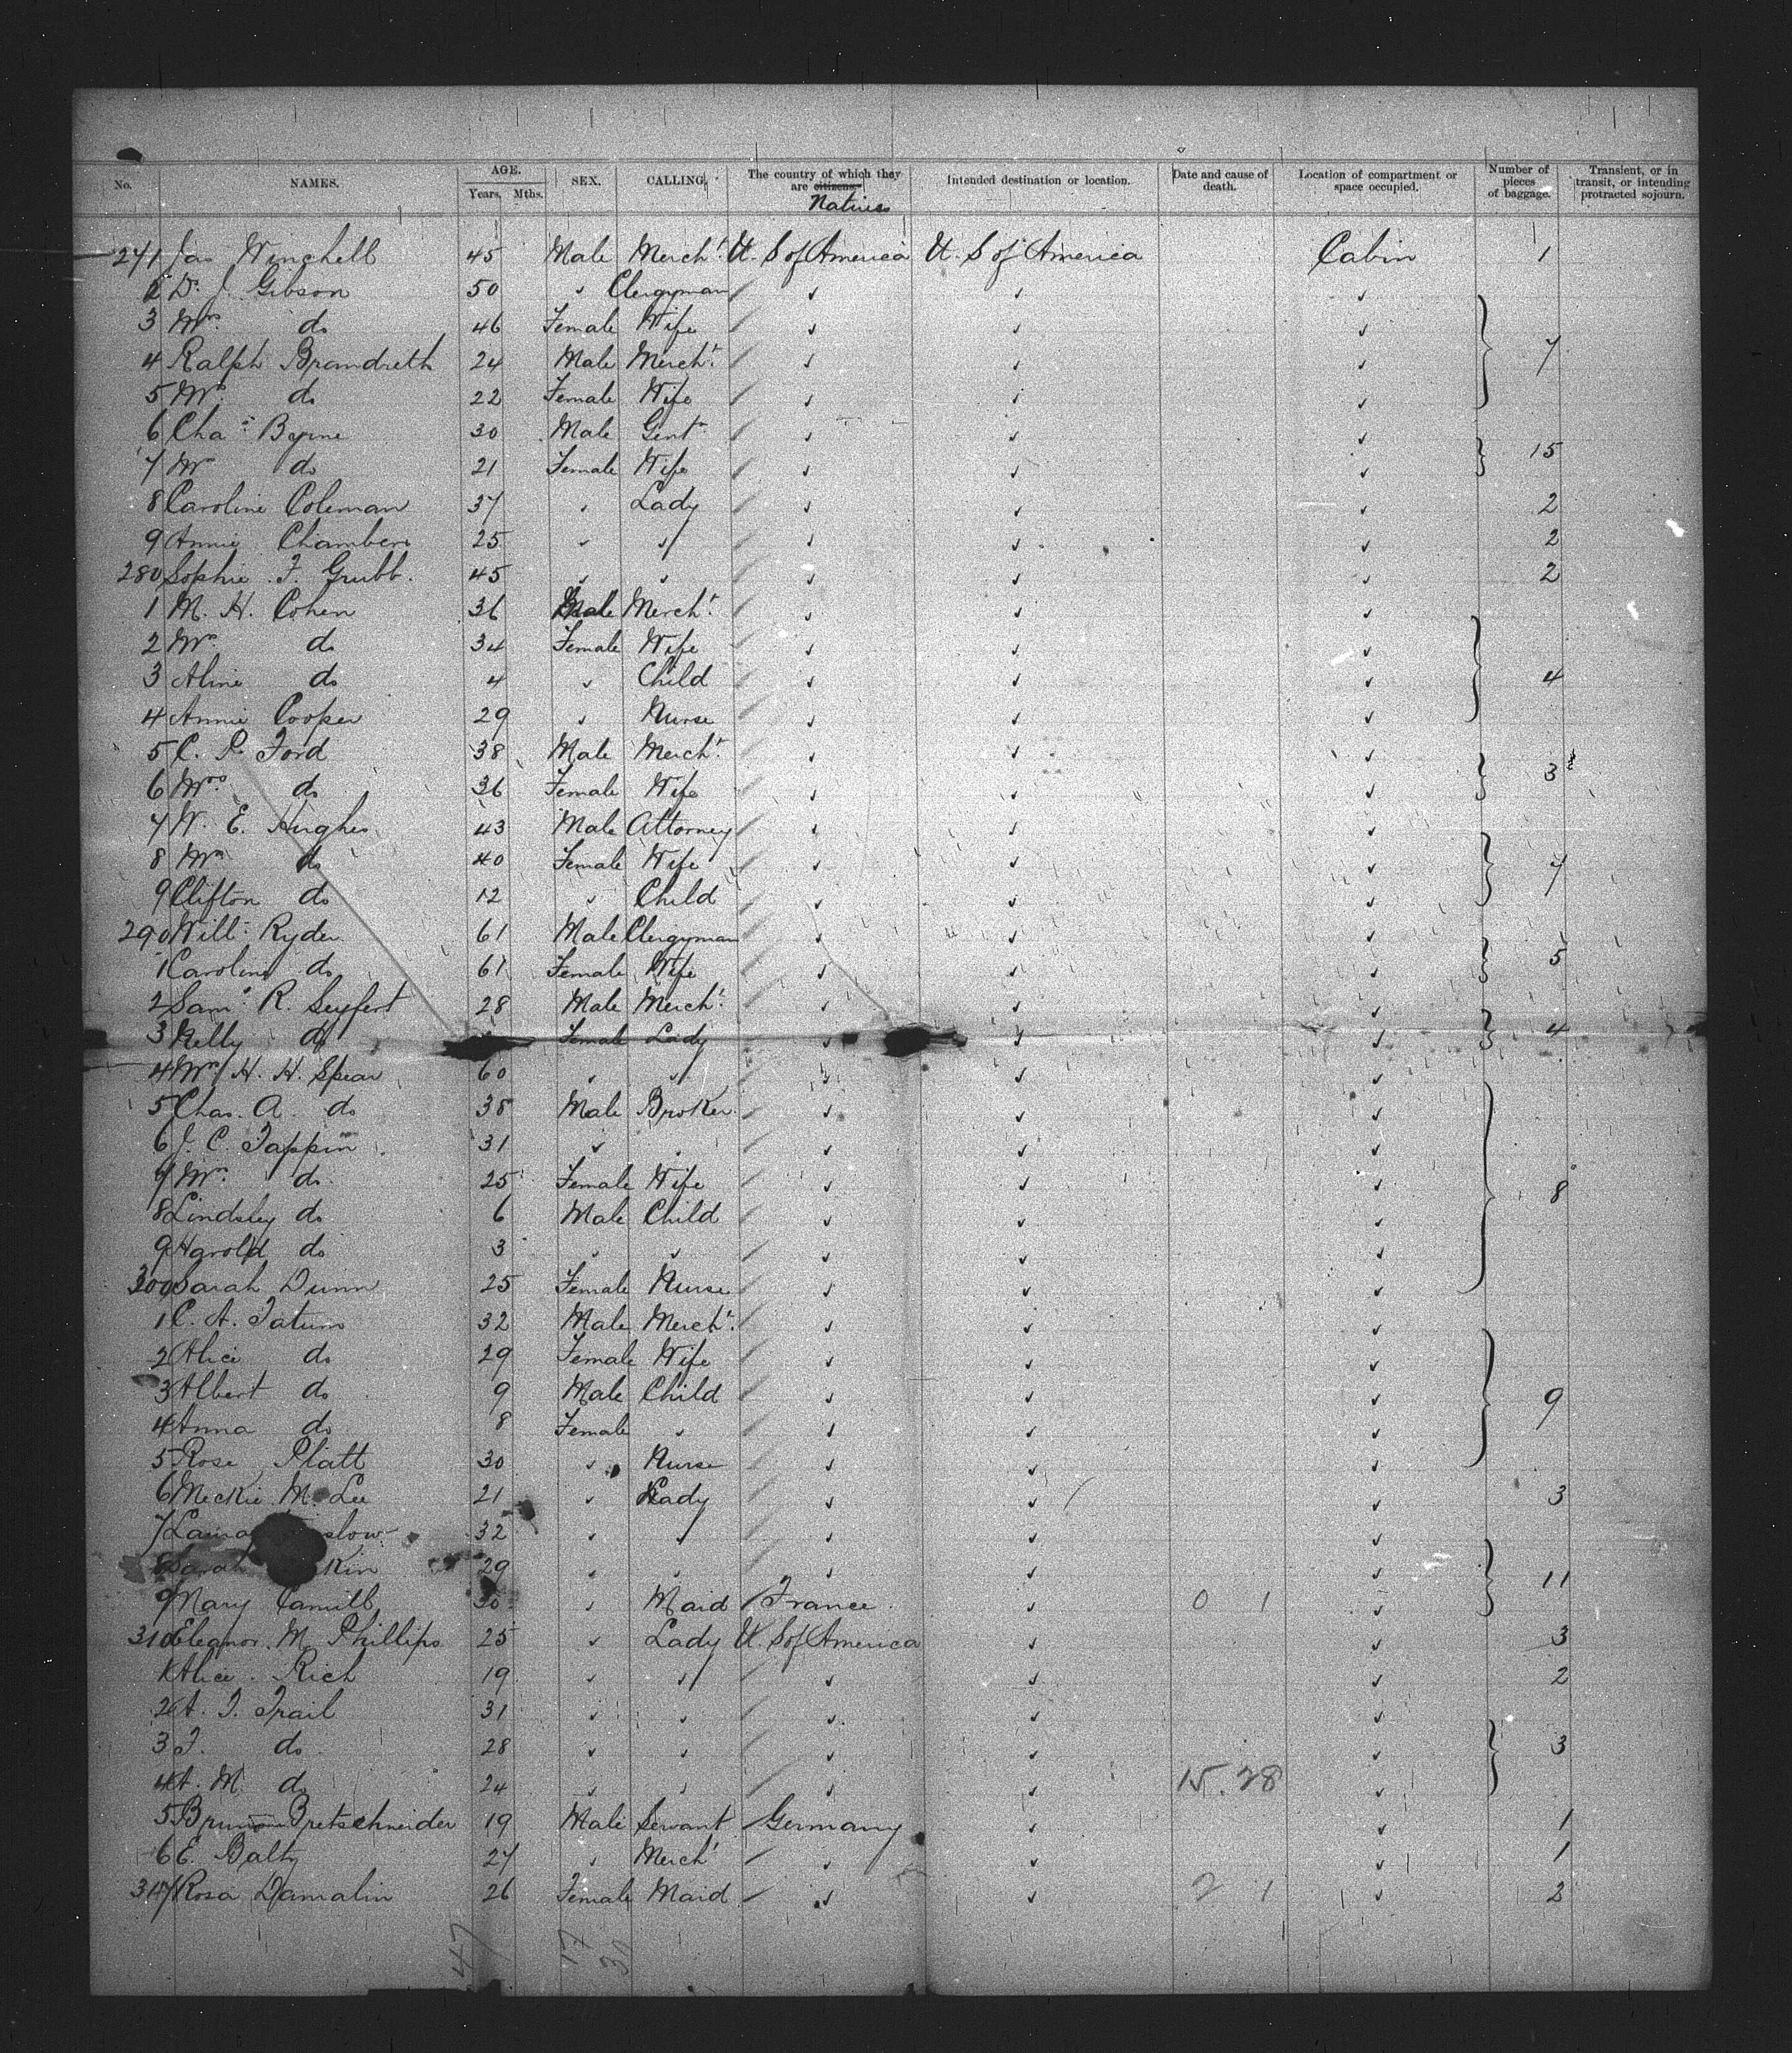 No. NAMES. AGE. Years. Mths. SEX. CALLING. The country of which they are citizens. Natives Intended destination or location. Date and cause of death. Location of compartment or space occupied. Number of pieces of baggage. Transient, or in transit, or intending protracted sojourn.
271 Jas Winchell 45 Male Merch't U. S of America U. S of America Cabin 1
2 D. J. Gibson 50 " Clergyman " " "
3 Mrs do 46 Female Wife " " "
4 Ralph Brandreth 24 Male Merch't " " " 7
5 Mrs do 22 Female Wife " " "
6 Chas Byrne 30 Male Gent " " "
7 Mrs do 21 Female Wife " " " 15
8 Caroline Coleman 37 " Lady " " " 2
9 Annie Chambers 25 " " " " " 2
280 Sophie F. Grubb. 45 " " " " " 2
1 M. H. Cohen 36 Male Merch't " " "
2 Mrs do 34 Female Wife " " "
3 Aline do 4 " Child " " " 4
4 Annie Cooper 29 " Nurse " " "
5 C. P. Ford 38 Male Merch't " " "
6 Mrs do 36 Female Wife " " " 3
7 W. E. Hughes 43 Male Attorney " " "
8 Mrs do 40 Female Wife " " " 7
9 Clifton do 12 " Child " " "
290 Will'm Ryder 61 Male Clergyman " " "
1 Caroline do 61 Female Wife " " " 5
2 Sam'l R. Seyfert 28 Male Merch't " " "
3 Nelly do Female Lady " " " 4
4 Mrs H. H. Spear 60 " " " " "
5 Chas. A. do 38 Male Broker " " "
6 J. C. Tappin 31 " " " " "
7 Mrs do 25 Female Wife " " " 8
8 Lindsley do 6 Male Child " " "
9 Harold do 3 " " " " "
300 Sarah Dunn 25 Female Nurse " " "
1 C. A. Tatum 32 Male Merch't " " "
2 Alice do 29 Female Wife " " "
3 Albert do 9 Male Child " " " 9
4 Anna do 8 Female " " " "
5 Rose Platt 30 " Nurse " " "
6 Meckie M. Lee 21 " Lady " " " 3
7 Laura slow 32 " " " " "
8 Sarah kin 29 " " " " " 11
9 Mary Camill 30 " Maid France " 0 1 "
310 Eleanor. M. Phillips 25 " Lady U. S of America " " 3
1 Alice Rich 19 " " " " " 2
2 A. T. Trail 31 " " " " "
3 T. do 28 " " " " " 3
4 A. M. do 24 " " " " 15.28 "
5 Bruno Bretschneider 19 Male Servant Germany " " 1
6 E. Balty 27 " Merch't " " " 1
317 Rosa Damalin 26 Female Maid " " 2 1 " 2
47 17 30